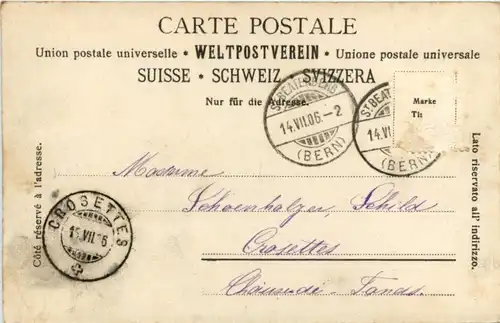 CARTE POSTALE
Union postale universelle • WELTPOSTVEREIN • Unione postale universale
SUISSE • SCHWEIZ • SVIZZERA
Nur für die Adresse.
ST BEATENBERG
14.VII.06.-2
(BERN)
ST BEATE
14.VI
(BERN)
Marke
Madame
Schoenholzer, Schild
Crosettes
Chaux-de-Fonds.
CROSETTES
15.VII.06
Côté réservé à l'adresse.
Lato riservato all' indirizzo.